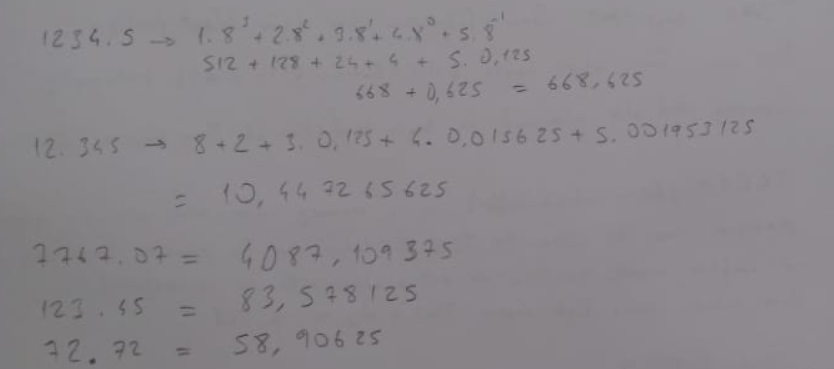 1234.5 → 1.8³ + 2.8² + 3.8¹ + 4.8⁰ + 5.8⁻¹
512 + 128 + 24 + 4 + 5. 0,125
668 + 0,625 = 668,625
12.345 → 8 + 2 + 3. 0,125 + 4. 0,015625 + 5. 001953125
= 10,447265625
7767.07 = 4087,109375
123.45 = 83,578125
72.72 = 58,90625